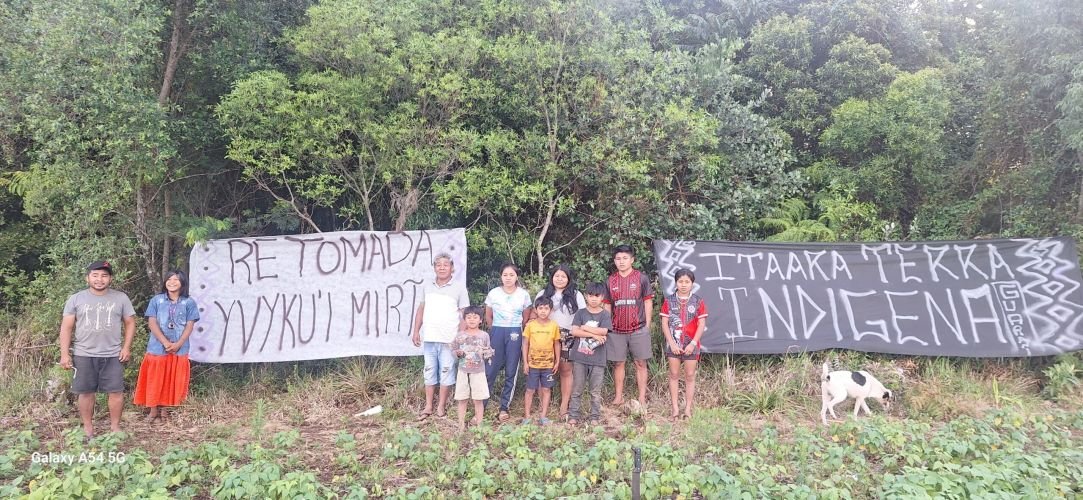 RETOMADA
YVYKU'I MIRĨ
ITAAKA TERRA
INDIGENA
Galaxy A54 5G